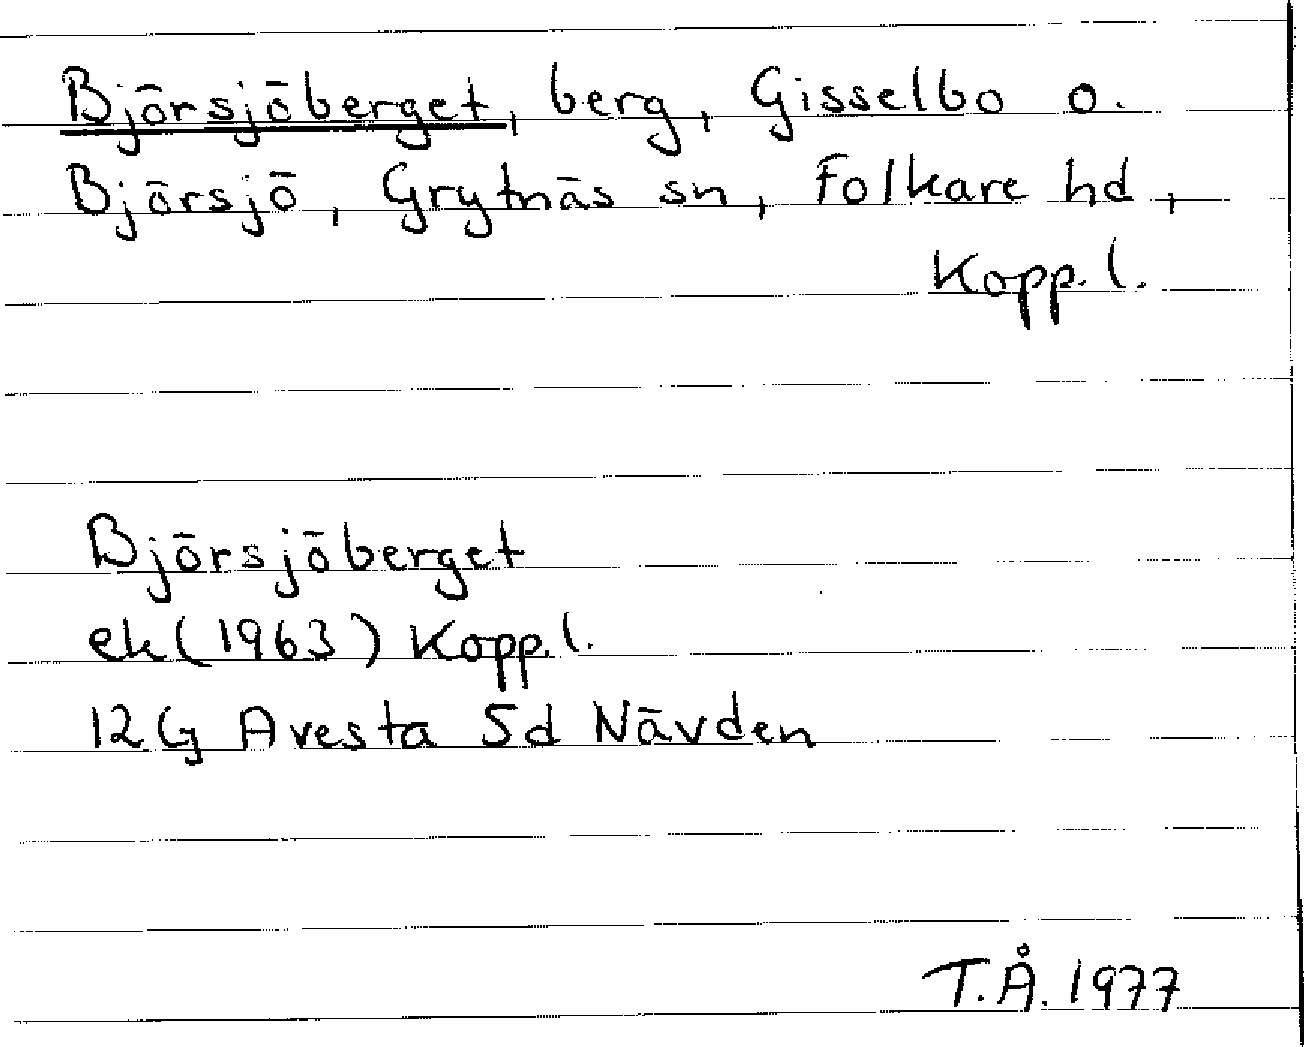 Björsjöberget, berg, Gisselbo o.
Björsjö, Grytnäs sn, Folkare hd,
Kopp. l.
Björsjöberget
ek (1963) Kopp. l.
12G Avesta 5d Nävden
T.Å. 1977